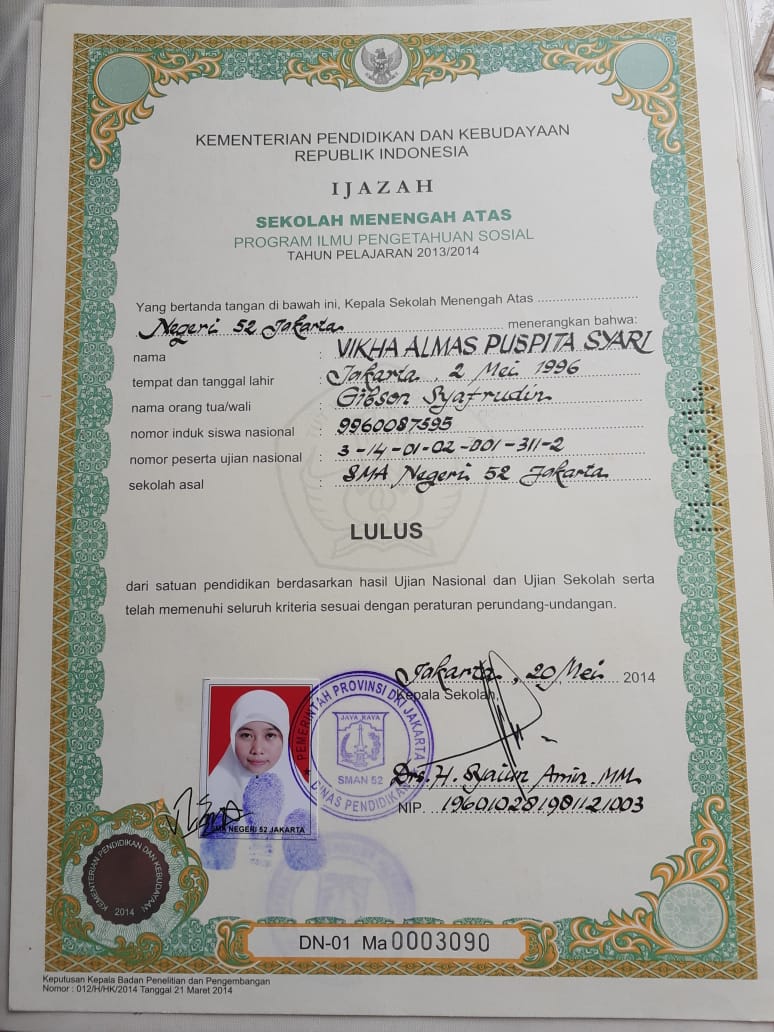 KEMENTERIAN PENDIDIKAN DAN KEBUDAYAAN
REPUBLIK INDONESIA
IJAZAH
SEKOLAH MENENGAH ATAS
PROGRAM ILMU PENGETAHUAN SOSIAL
TAHUN PELAJARAN 2013/2014
Yang bertanda tangan di bawah ini, Kepala Sekolah Menengah Atas
Negeri 52 Jakarta menerangkan bahwa:
nama : VIKHA ALMAS PUSPITA SYARI
tempat dan tanggal lahir : Jakarta, 2 Mei 1996
nama orang tua/wali : Gibson Syafrudin
nomor induk siswa nasional : 9960087595
nomor peserta ujian nasional : 3-14-01-02-001-311-2
sekolah asal : SMA Negeri 52 Jakarta
LULUS
dari satuan pendidikan berdasarkan hasil Ujian Nasional dan Ujian Sekolah serta
telah memenuhi seluruh kriteria sesuai dengan peraturan perundang-undangan.
Jakarta, 20 Mei 2014
Kepala Sekolah,
PEMERINTAH PROVINSI DKI JAKARTA
JAYA RAYA
SMAN 52
DINAS PENDIDIKAN
Drs. H. Syaiun Amin. MM
NIP. 196010281981121003
NEGERI 52 JAKARTA
KEMENTERIAN PENDIDIKAN DAN KEBUDAYAAN
2014
DN-01 Ma 0003090
Keputusan Kepala Badan Penelitian dan Pengembangan
Nomor : 012/H/HK/2014 Tanggal 21 Maret 2014